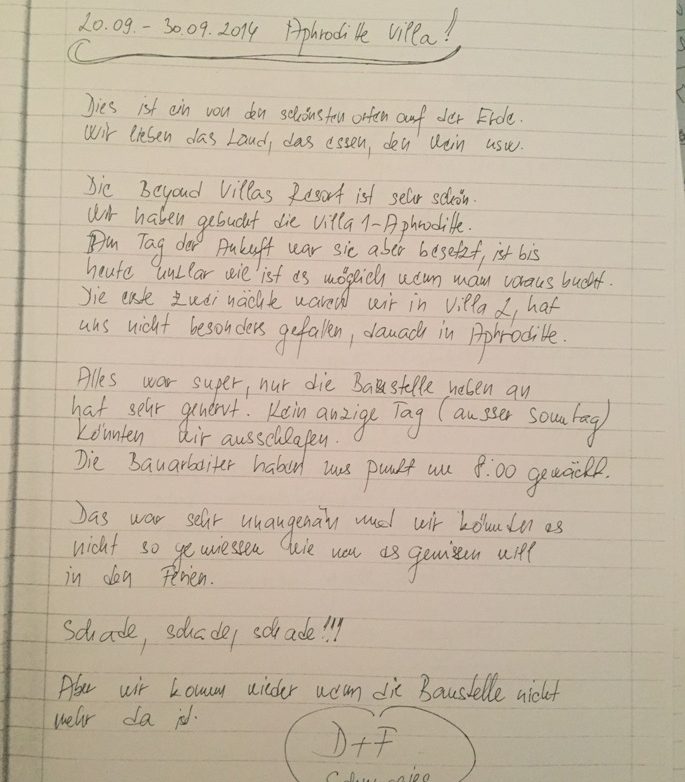 20.09. - 30.09.2014 Aphroditte Villa!
Dies ist ein von den schönsten orten auf der Erde.
Wir lieben das Land, das essen, den Wein usw.
Die Beyond Villas Resort ist sehr schön.
Wir haben gebucht die Villa 1-Aphroditte.
Am Tag der Ankuft war sie aber besetzt, ist bis
heute unklar wie ist es möglich wenn man voraus bucht.
Die erste zwei nächte waren wir in Villa 2, hat
uns nicht besonders gefallen, danach in Aphroditte.
Alles war super, nur die Baustelle neben an
hat sehr genervt. Kein anzige Tag (ausser Sonntag)
könnten wir ausschlafen.
Die Bauarbeiter haben uns punkt um 8:00 gewäckt.
Das war sehr unangenäm und wir könnten es
nicht so geniessen wie man es genissen will
in den Ferien.
Schade, schade, schade!!!
Aber wir kommen wieder wenn die Baustelle nicht
mehr da ist.
D+F